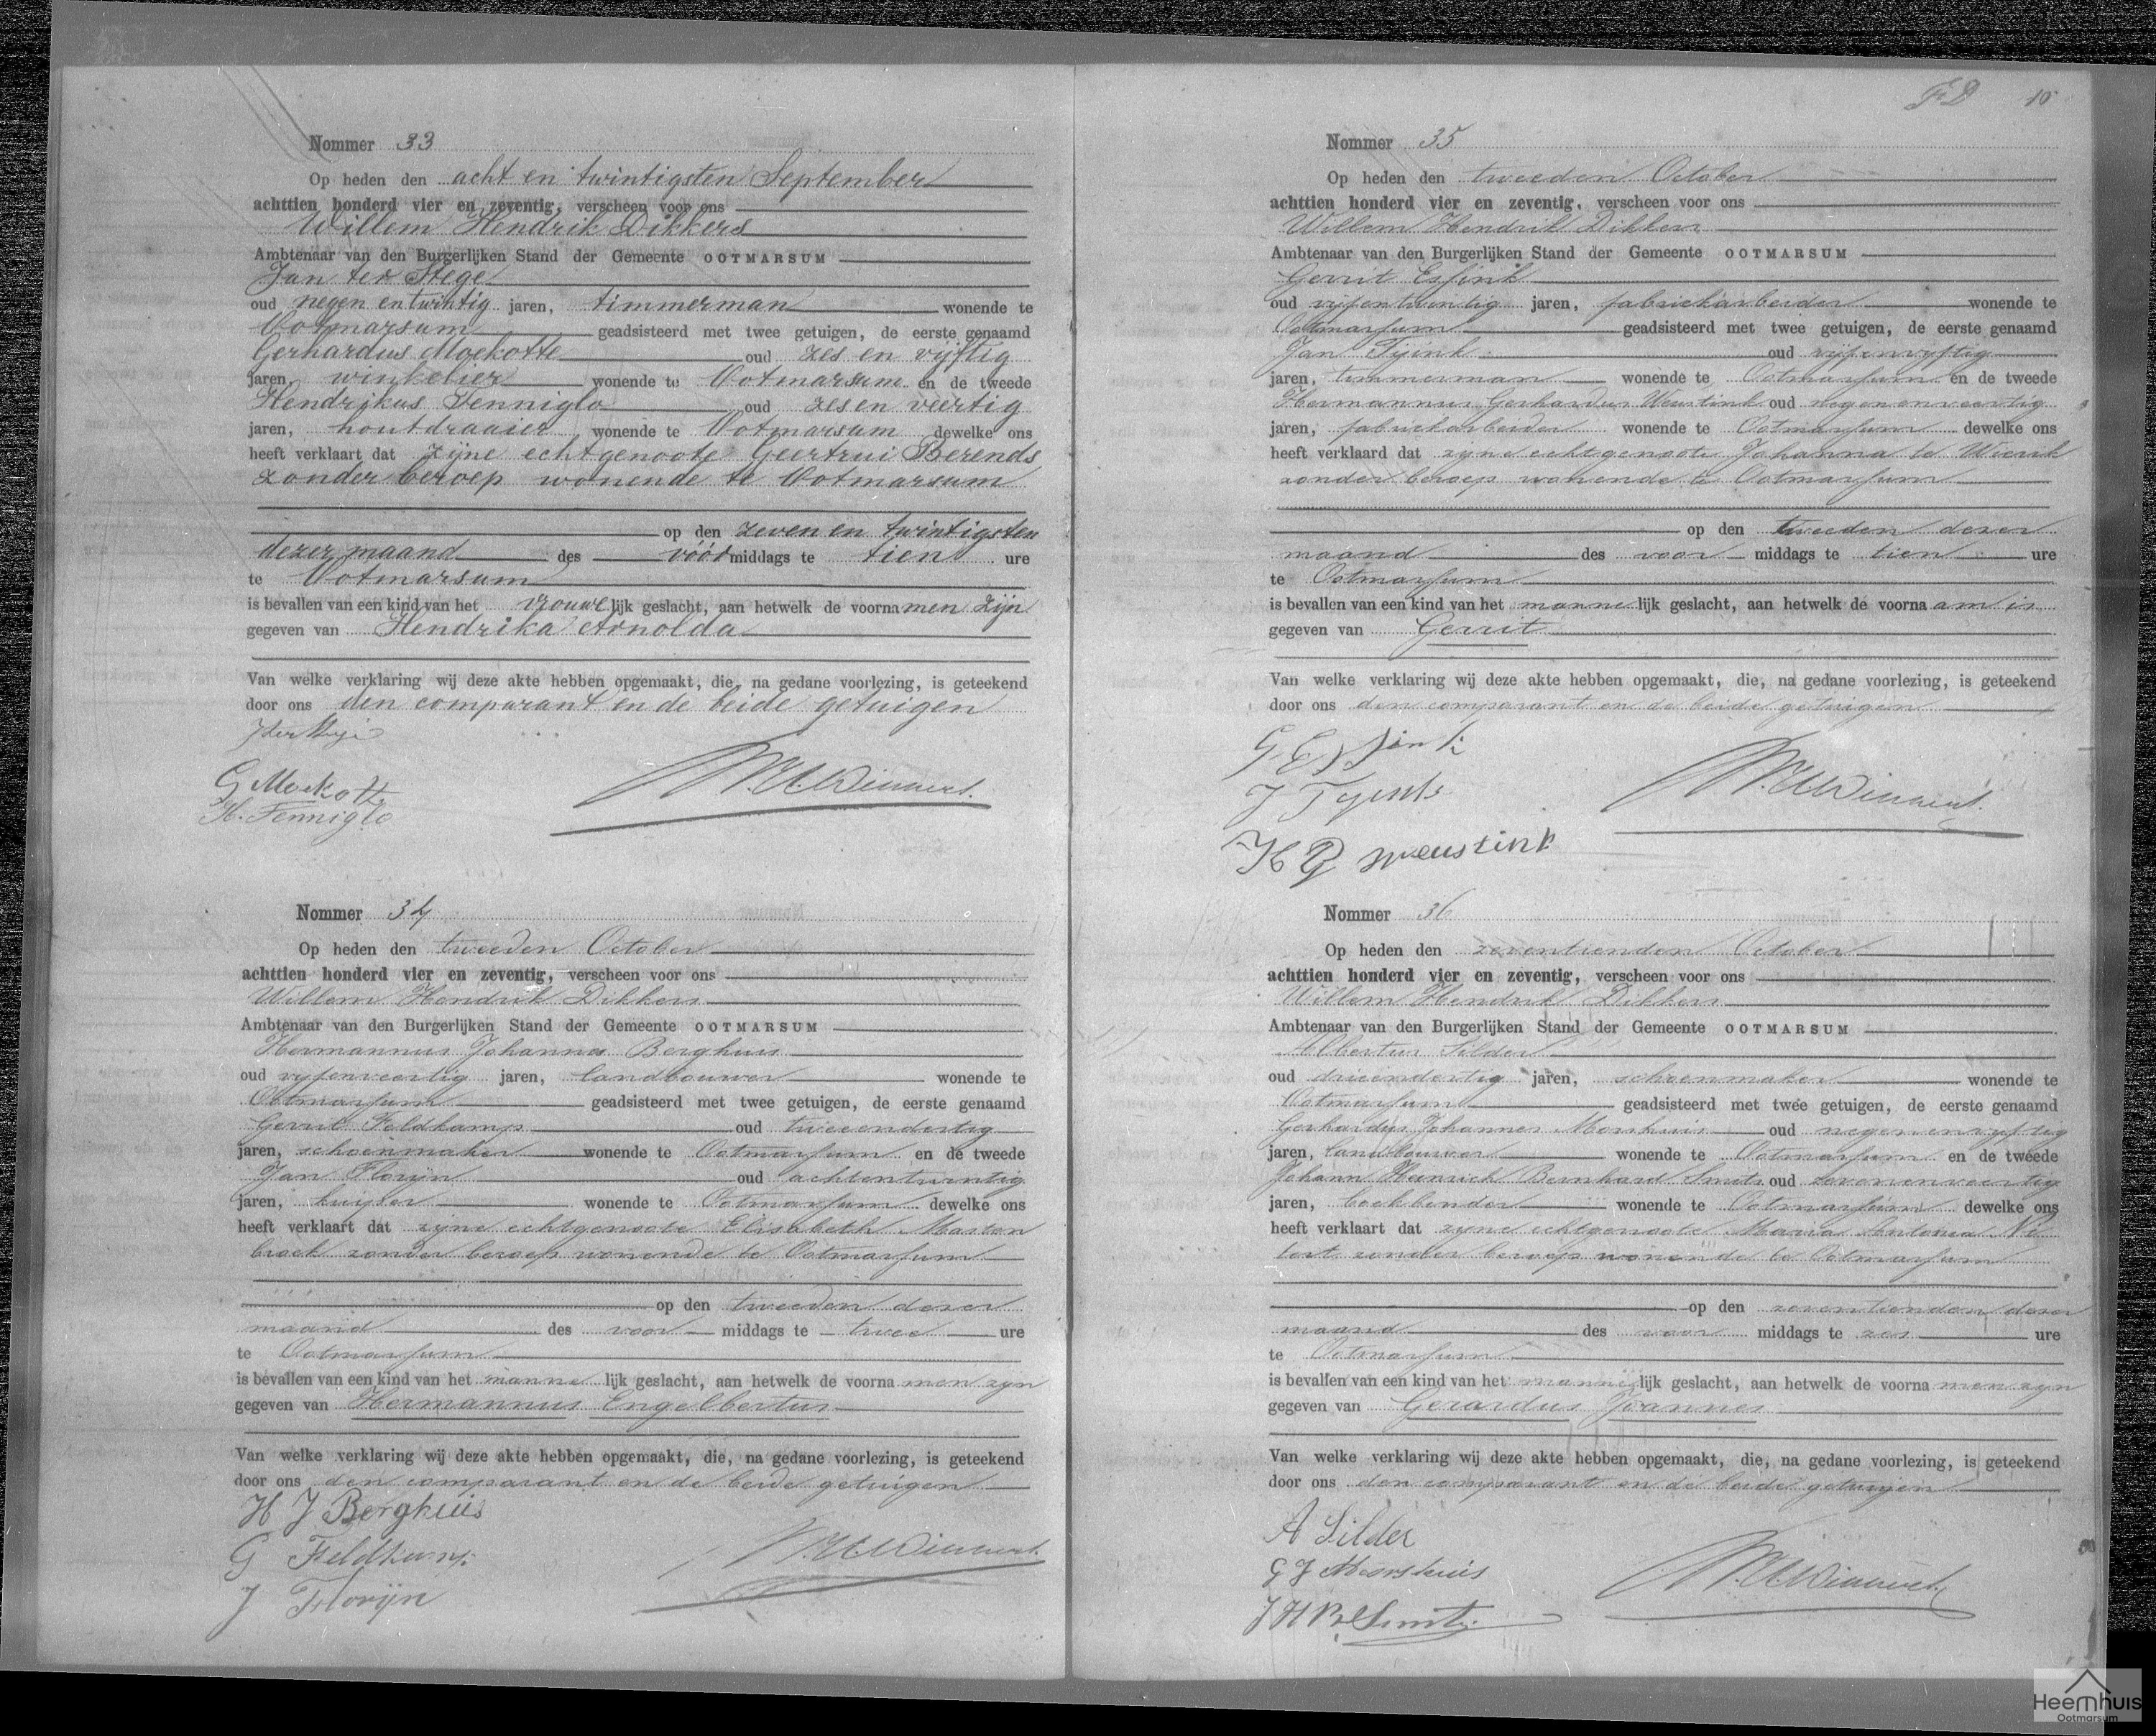 Nommer 33
Op heden den acht en twintigsten September
achttien honderd vier en zeventig, verscheen voor ons
Willem Hendrik Dikkers
Ambtenaar van den Burgerlijken Stand der Gemeente OOTMARSUM
Jan ter Stege
oud negen en twintig jaren, timmerman wonende te
Ootmarsum geadsisteerd met twee getuigen, de eerste genaamd
Gerhardus Moekotte oud zes en vijftig
jaren, winkelier wonende te Ootmarsum en de tweede
Hendrikus Fenniglo oud zes en veertig
jaren, houtdraaier wonende te Ootmarsum dewelke ons
heeft verklaart dat zijne echtgenoote Geertrui Berends
zonder beroep wonende te Ootmarsum
op den zeven en twintigsten
dezer maand des vóór middags te tien ure
te Ootmarsum
is bevallen van een kind van het vrouwelijk geslacht, aan hetwelk de voornamen zijn
gegeven van Hendrika Arnolda
Van welke verklaring wij deze akte hebben opgemaakt, die, na gedane voorlezing, is geteekend
door ons den comparant en de beide getuigen
J ter Stege
G Moekotte
H. Fenniglo
Nommer 34
Op heden den tweeden October
achttien honderd vier en zeventig, verscheen voor ons
Willem Hendrik Dikkers
Ambtenaar van den Burgerlijken Stand der Gemeente OOTMARSUM
Hermannus Johannes Berghuis
oud vijfenveertig jaren, landbouwer wonende te
Ootmarsum geadsisteerd met twee getuigen, de eerste genaamd
Gerrit Feldkamp oud tweeendertig
jaren, schoenmaker wonende te Ootmarsum en de tweede
Jan Florijn oud achtentwintig
jaren, kuiper wonende te Ootmarsum dewelke ons
heeft verklaart dat zijne echtgenoote Elisabeth Masten
broek zonder beroep wonende te Ootmarsum
op den tweeden dezer
maand des voor middags te twee ure
te Ootmarsum
is bevallen van een kind van het mannelijk geslacht, aan hetwelk de voornamen zijn
gegeven van Hermannus Engelbertus
Van welke verklaring wij deze akte hebben opgemaakt, die, na gedane voorlezing, is geteekend
door ons den comparant en de beide getuigen
H J Berghuis
G Feldkamp
J Florijn
10
Nommer 35
Op heden den tweeden October
achttien honderd vier en zeventig, verscheen voor ons
Willem Hendrik Dikkers
Ambtenaar van den Burgerlijken Stand der Gemeente OOTMARSUM
Gerrit Essink
oud vijfentwintig jaren, fabriekarbeider wonende te
Ootmarsum geadsisteerd met twee getuigen, de eerste genaamd
Jan Tijink oud vijfenvijftig
jaren, timmerman wonende te Ootmarsum en de tweede
Hermannus Gerhardus Weustink oud negenenveertig
jaren, fabriekarbeider wonende te Ootmarsum dewelke ons
heeft verklaard dat zijne echtgenoote Johanna te Wierik
zonder beroep wonende te Ootmarsum
op den tweeden dezer
maand des voor middags te tien ure
te Ootmarsum
is bevallen van een kind van het mannelijk geslacht, aan hetwelk de voornaam is
gegeven van Gerrit
Van welke verklaring wij deze akte hebben opgemaakt, die, na gedane voorlezing, is geteekend
door ons den comparant en de beide getuigen
G Essink
J Tyink
H G Weustink
Nommer 36
Op heden den zeventienden October
achttien honderd vier en zeventig, verscheen voor ons
Willem Hendrik Dikkers
Ambtenaar van den Burgerlijken Stand der Gemeente OOTMARSUM
Albertus Silder
oud drieendertig jaren, schoenmaker wonende te
Ootmarsum geadsisteerd met twee getuigen, de eerste genaamd
Gerhardus Johannes Morshuis oud negenenvijftig
jaren, landbouwer wonende te Ootmarsum en de tweede
Johann Heinrich Bernhard Smits oud zevenenveertig
jaren, boekbinder wonende te Ootmarsum dewelke ons
heeft verklaart dat zijne echtgenoote Maria Antonia
zonder beroep wonende te Ootmarsum
op den zeventienden dezer
maand des voor middags te zes ure
te Ootmarsum
is bevallen van een kind van het mannelijk geslacht, aan hetwelk de voornamen zijn
gegeven van Gerardus Joannes
Van welke verklaring wij deze akte hebben opgemaakt, die, na gedane voorlezing, is geteekend
door ons den comparant en de beide getuigen
A Silder
G J Morshuis
J H B Smits
Heemhuis
Ootmarsum